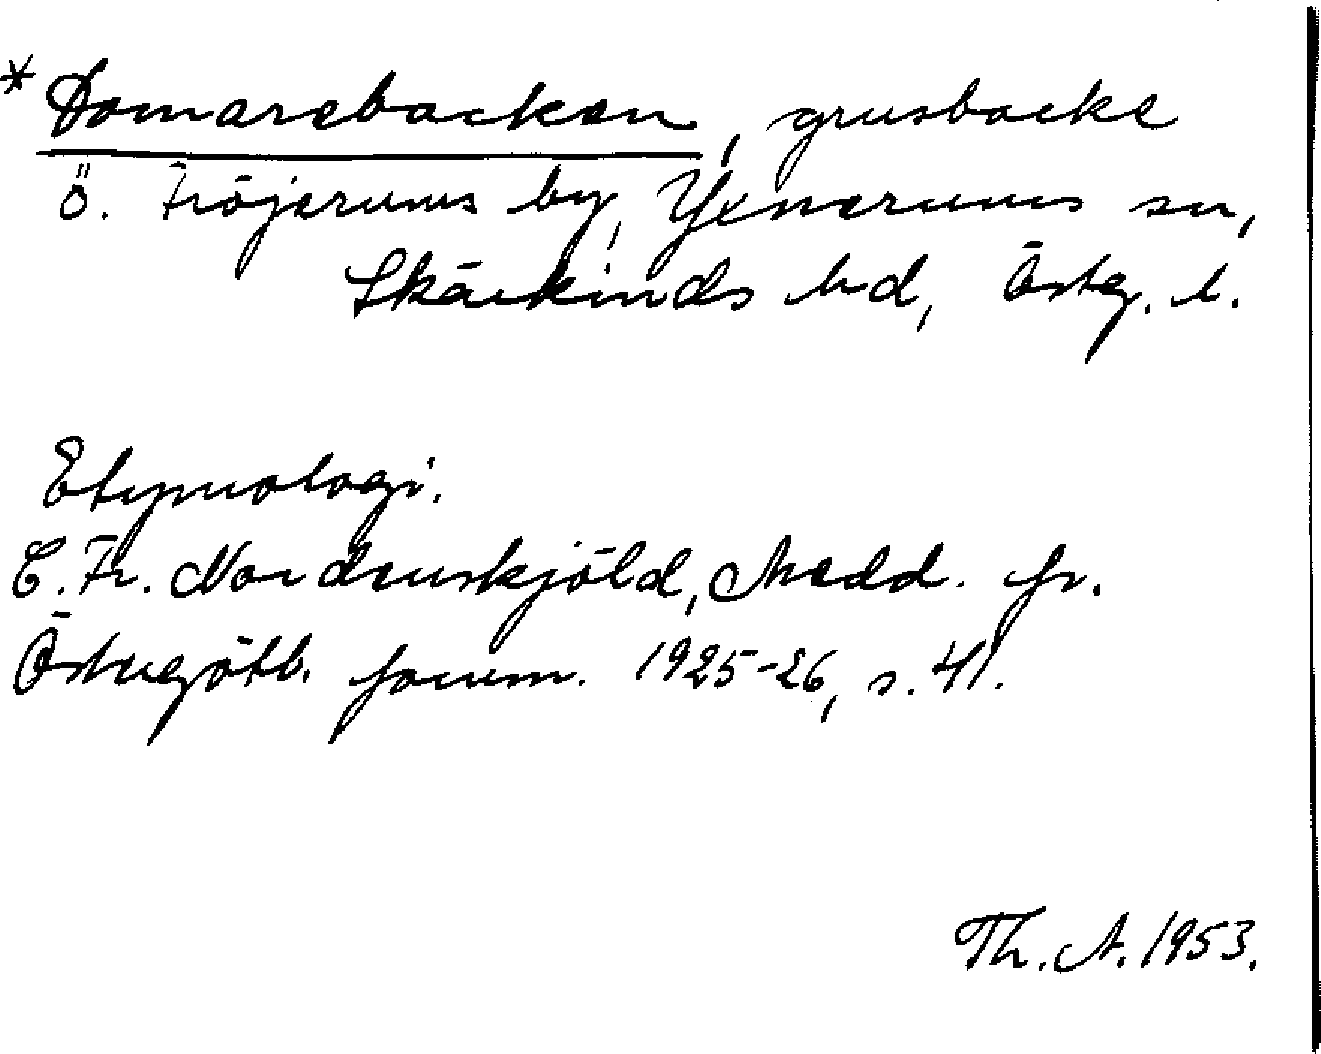 * Domarebacken, grusbacke
Ö. Fröjerums by, Yxnerums sn,
Skärkinds hd, Östg. l.
Etymologi.
C. Fr. Nordenskjöld, Medd. fr.
Östergötl. fornm. 1925-26, s. 41.
Th. A. 1953.